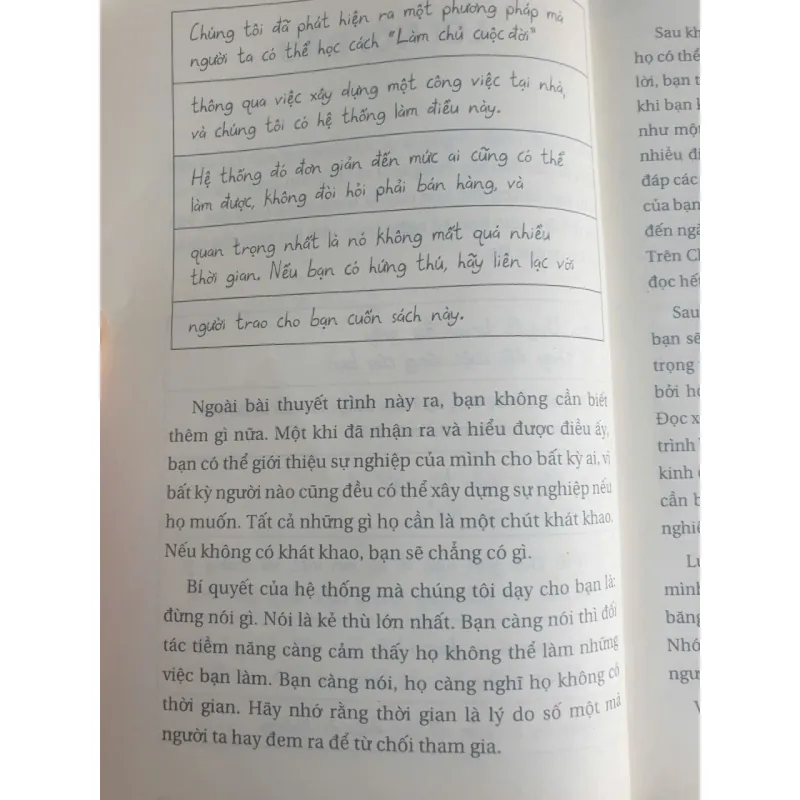 Chúng tôi đã phát hiện ra một phương pháp mà
người ta có thể học cách "Làm chủ cuộc đời"
thông qua việc xây dựng một công việc tại nhà,
và chúng tôi có hệ thống làm điều này.
Hệ thống đó đơn giản đến mức ai cũng có thể
làm được, không đòi hỏi phải bán hàng, và
quan trọng nhất là nó không mất quá nhiều
thời gian. Nếu bạn có hứng thú, hãy liên lạc với
người trao cho bạn cuốn sách này.
Ngoài bài thuyết trình này ra, bạn không cần biết
thêm gì nữa. Một khi đã nhận ra và hiểu được điều ấy,
bạn có thể giới thiệu sự nghiệp của mình cho bất kỳ ai, vì
bất kỳ người nào cũng đều có thể xây dựng sự nghiệp nếu
họ muốn. Tất cả những gì họ cần là một chút khát khao.
Nếu không có khát khao, bạn sẽ chẳng có gì.
Bí quyết của hệ thống mà chúng tôi dạy cho bạn là:
đừng nói gì. Nói là kẻ thù lớn nhất. Bạn càng nói thì đối
tác tiềm năng càng cảm thấy họ không thể làm những
việc bạn làm. Bạn càng nói, họ càng nghĩ họ không có
thời gian. Hãy nhớ rằng thời gian là lý do số một mà
người ta hay đem ra để từ chối tham gia.
Sau
họ có thể
lời, bạn
khi bạn
như một
nhiều
đáp các
của bạn
đến
Trên
đọc hết
Sau
bạn sẽ
trọng
bởi
Đọc
trình
kinh
cần
mình
Nhớ